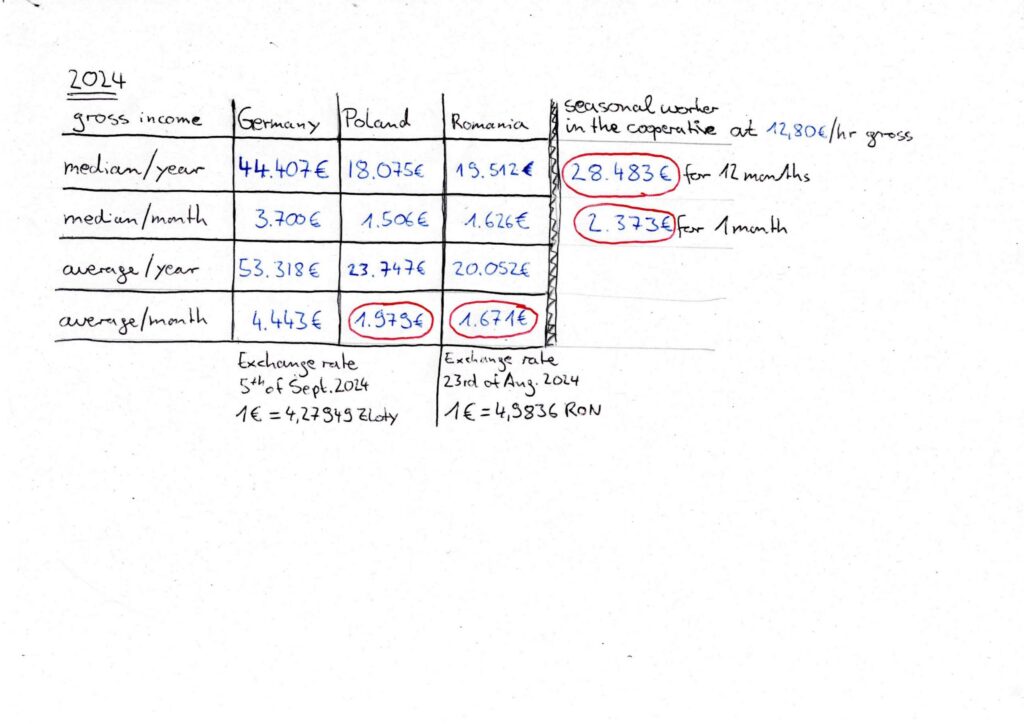 2024
gross income Germany Poland Romania seasonal worker
in the cooperative at 12,80€/hr gross
median/year 44.407€ 18.075€ 19.512€ 28.483€ for 12 months
median/month 3.700€ 1.506€ 1.626€ 2.373€ for 1 month
average/year 53.318€ 23.747€ 20.052€
average/month 4.443€ 1.979€ 1.671€
Exchange rate
5th of Sept. 2024
1€ = 4,27949 Zloty
Exchange rate
23rd of Aug. 2024
1€ = 4,9836 RON